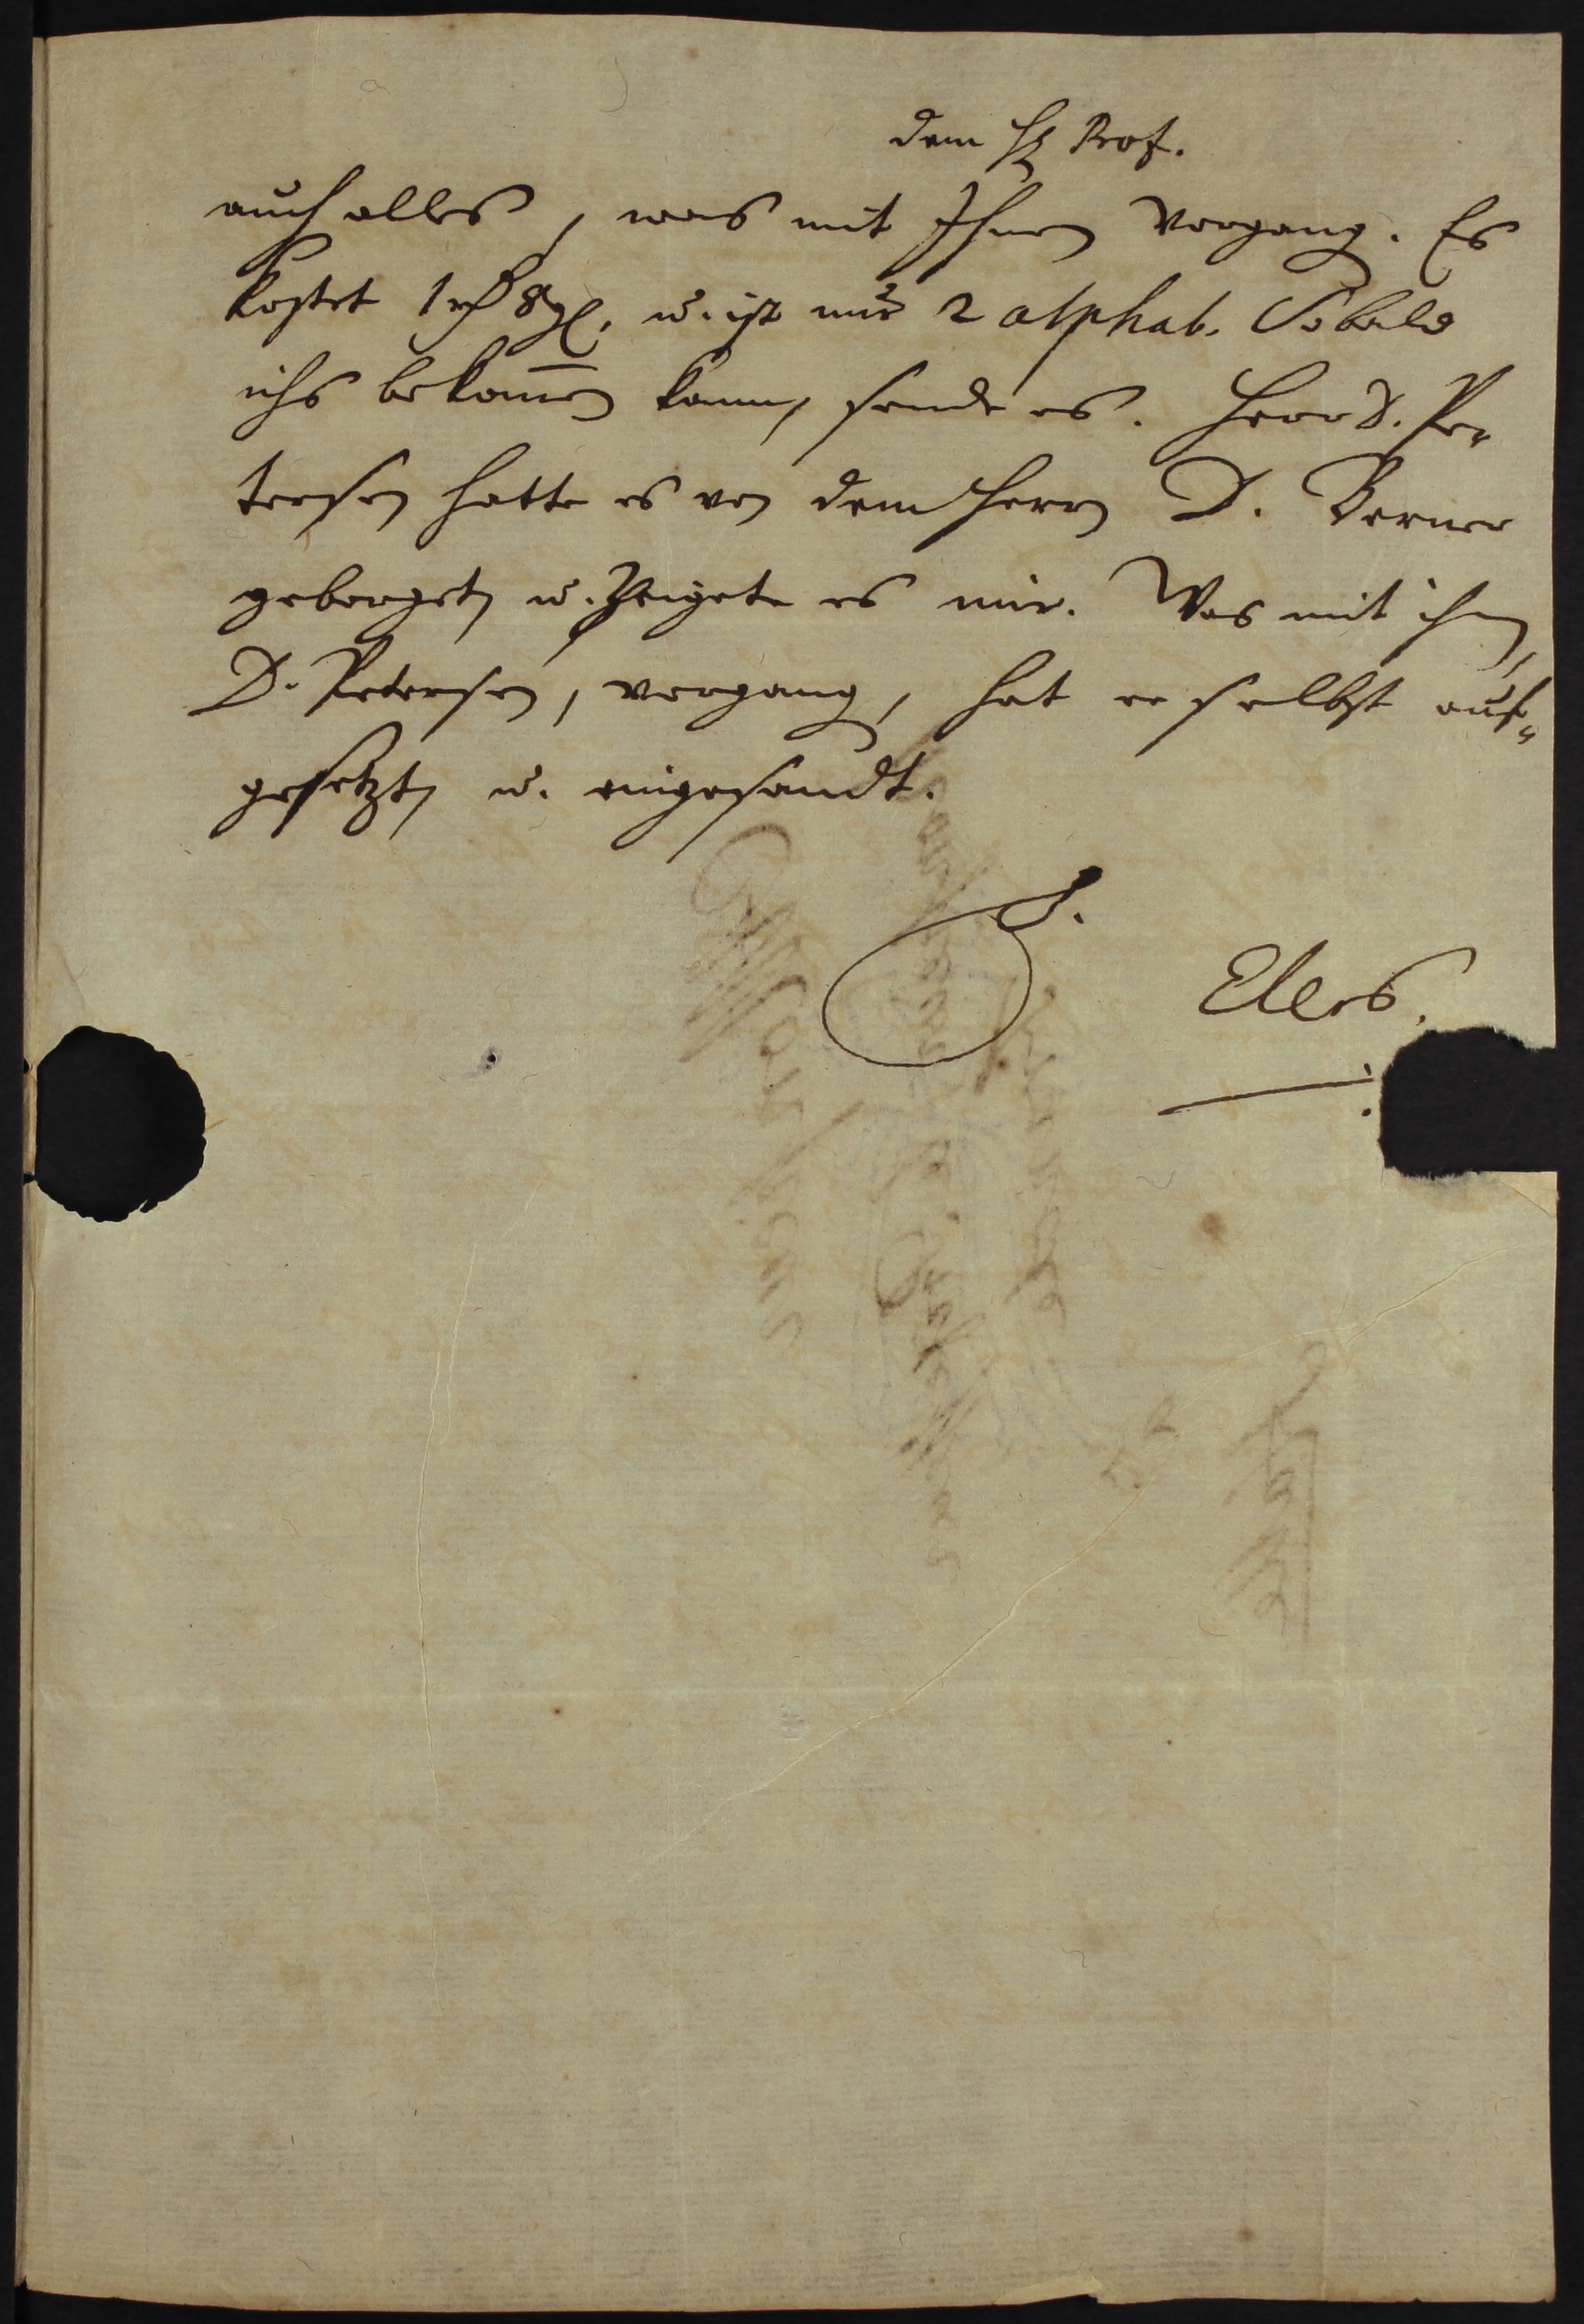 dem H Prof.
auch alles, was mit Ihnen vorgang. Es
kostet 1 rth 8 gl. u. ist nur 2 alphab. Sobald
ichs bekom̄en kann, sende es. Herr D. Pe„
tersen hatte es von dem Herrn D. Berner
geborget, u. zeigete es mir. Was mit ihm,
D. Petersen, vorgang, hat er selbst auf„
gesetzt, u. eingesandt.
Elers.